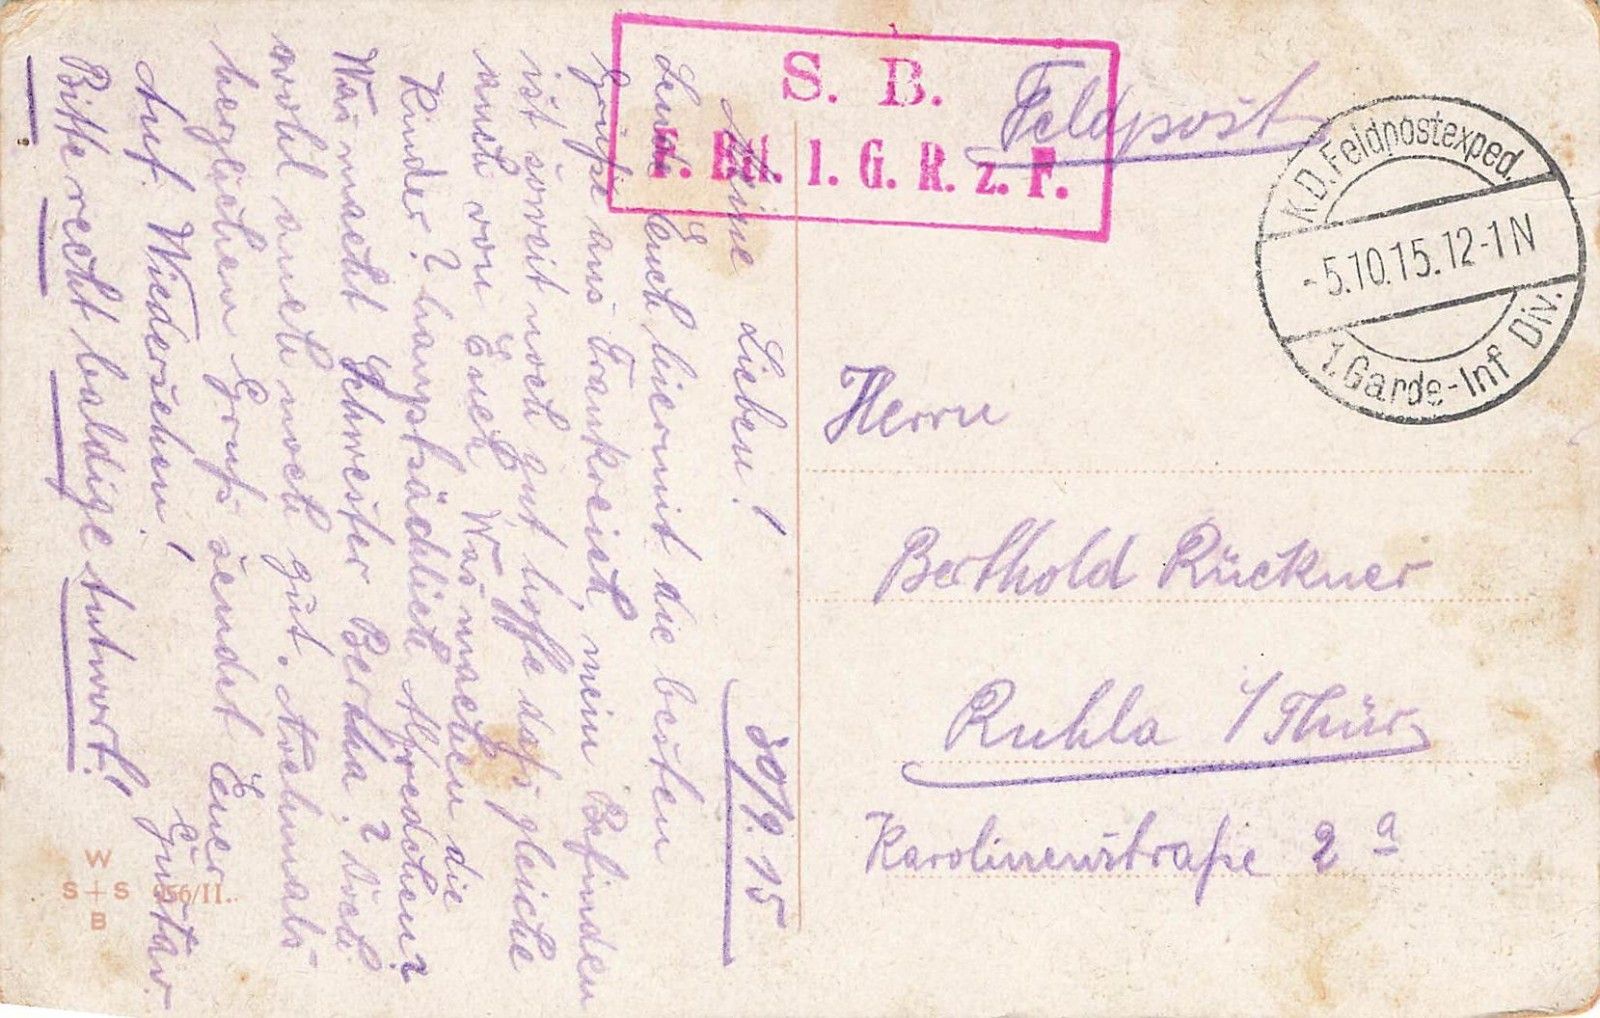 S. B.
F. Btl. 1. G. R. z. F.
Feldpost
K.D. Feldpostexped.
-5.10.15.12-1N
1. Garde-Inf Div.
Herrn
Berthold Rückner
Ruhla i/Thür.
Karolinenstraße 2a
30/9.15
Meine Lieben!
Sende Euch hiermit die besten
Grüße aus Frankreich, mein Befinden
ist soweit noch gut hoffe daß gleiche
auch von Euch. Was machen die
Kinder? hauptsächlich Alfredchen?
Was macht Schwester Bertha? doch
wohl auch noch gut. Nochmals
herzlichen Gruß sendet Euer
Gustav.
Auf Wiedersehen!
Bitte recht baldige Antwort!
W
S+S 956/II.
B